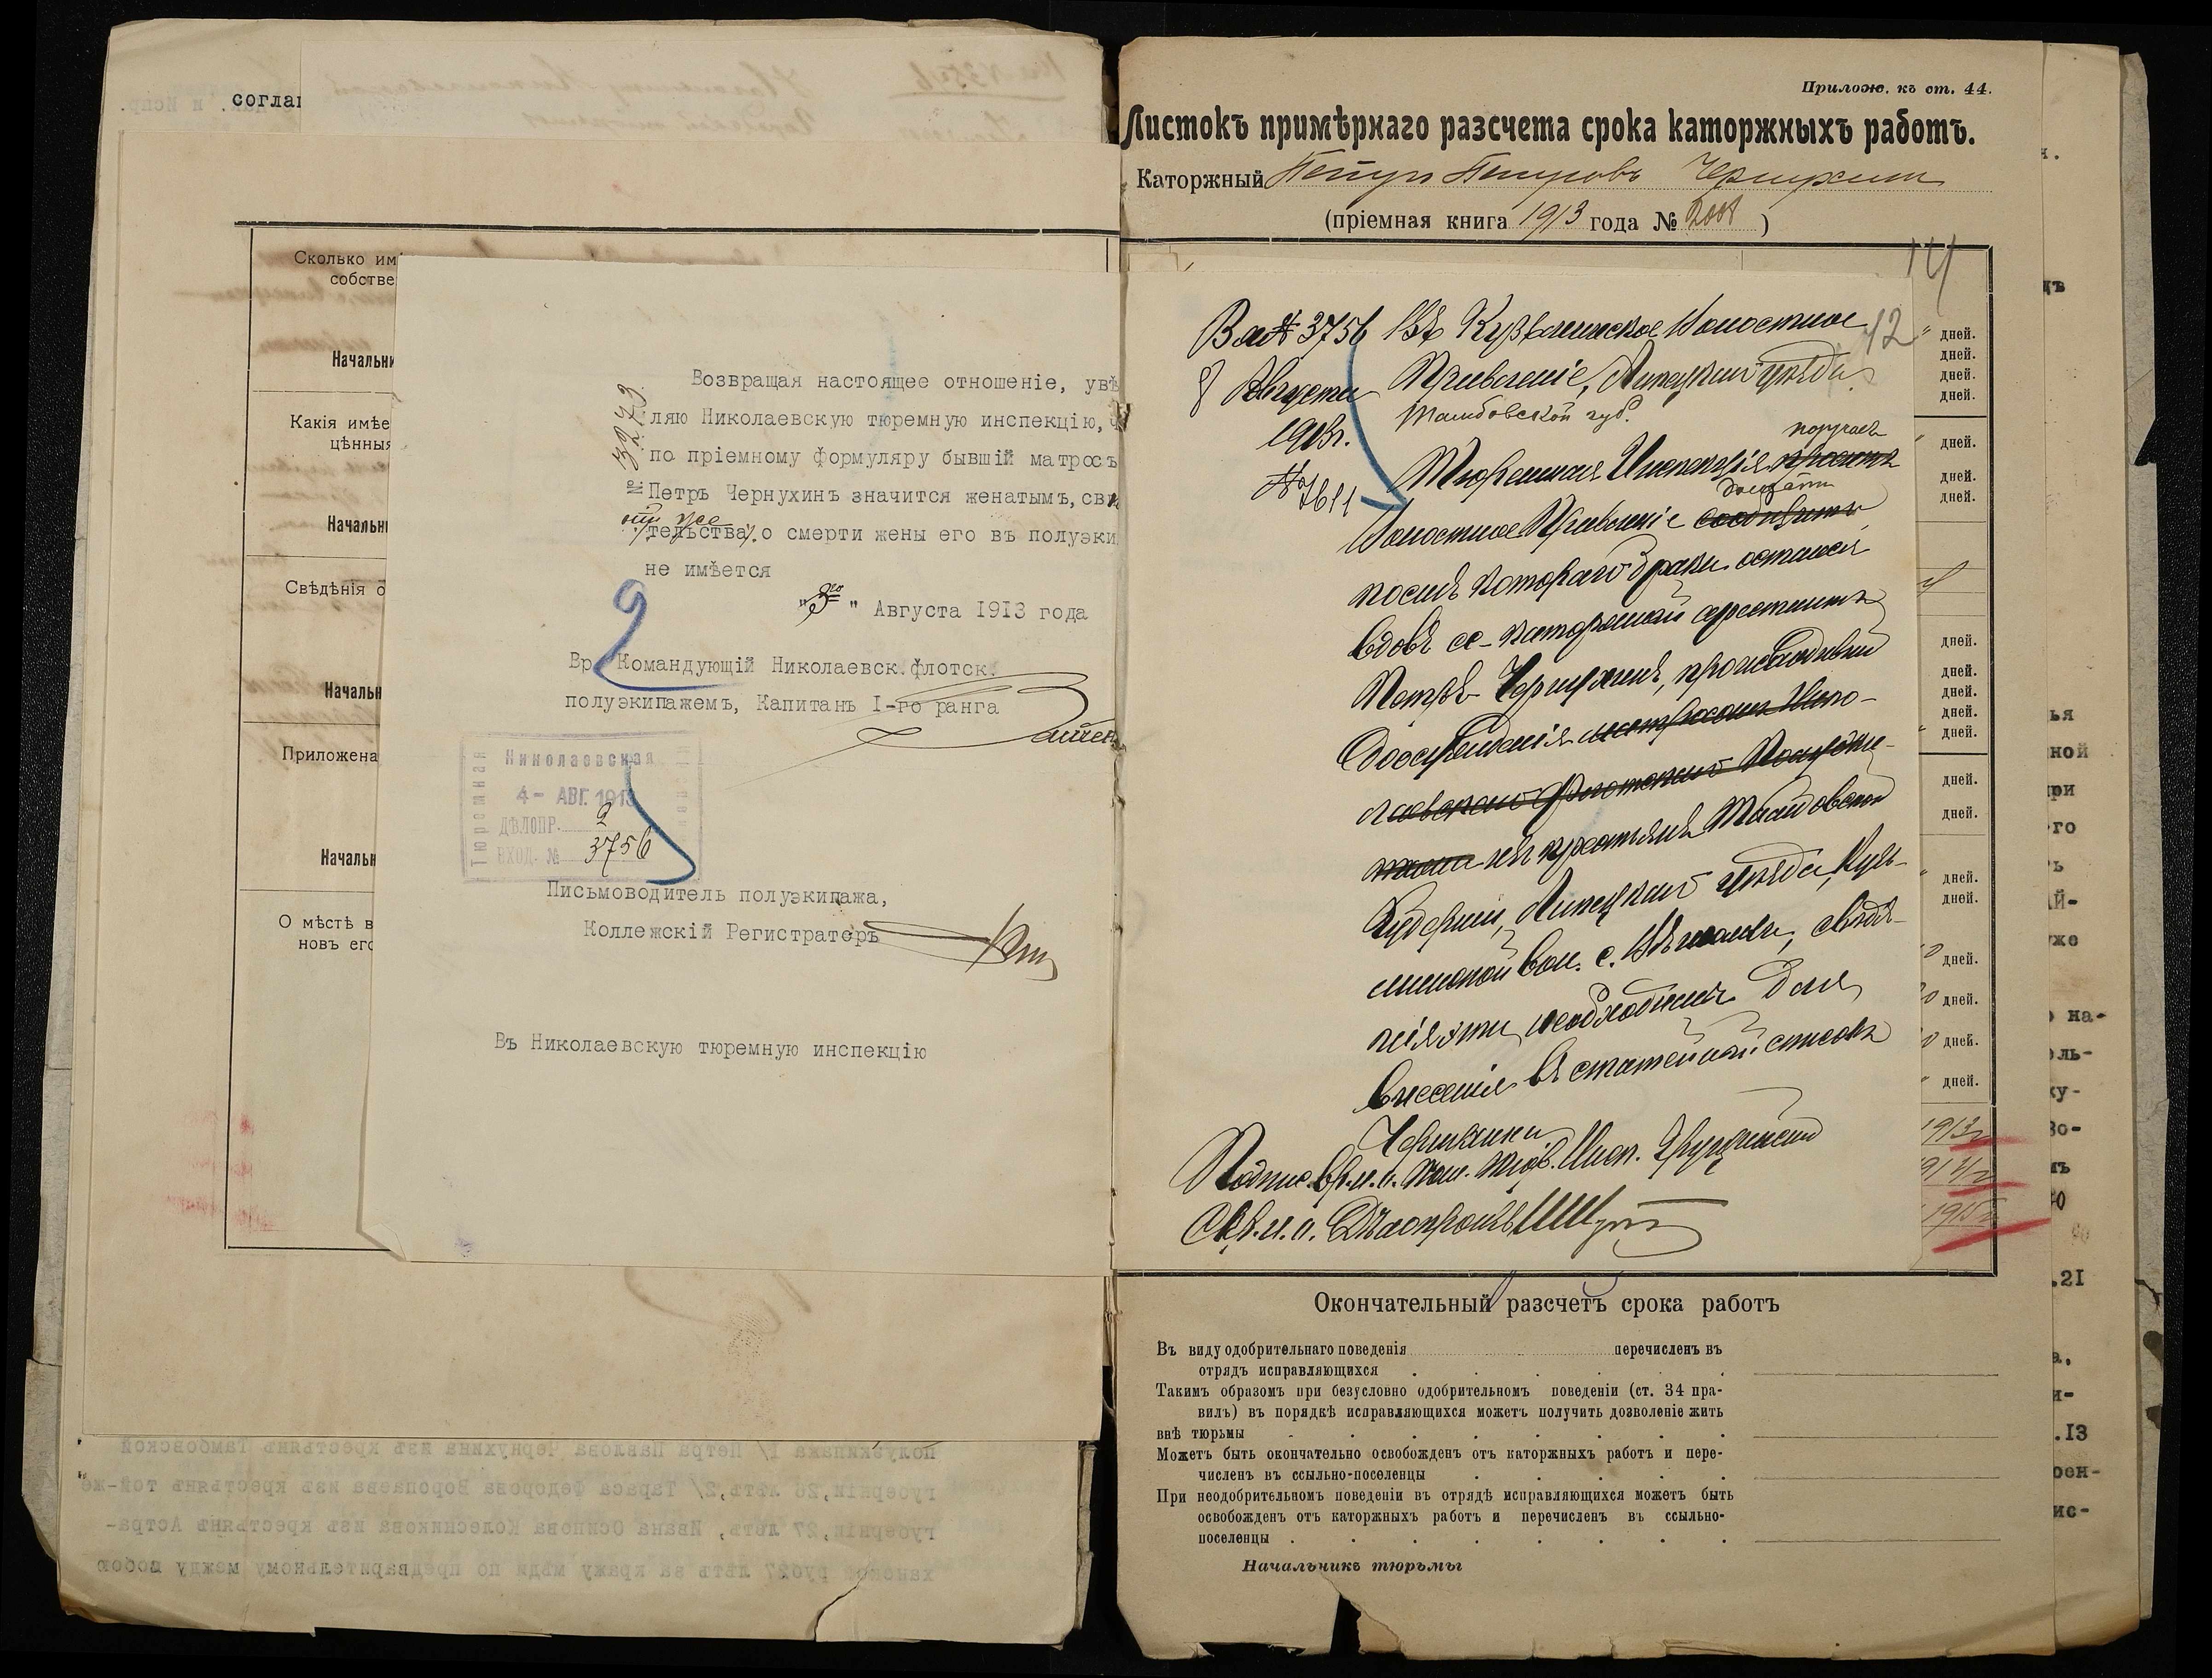 согла
Сколько им
собстве
Начальни
Какія имѣе
цѣнны
Начальн
Свѣдѣнія о
Начальн
Приложена
Начальн
О мѣстѣ в
новъ его
№ 3273
Возвращая настоящее отношеніе, увѣ
ляю Николаевскую тюремную инспекцію,
по пріемному формуляру бывшій матросъ
Петръ Чернухинъ значится женатымъ, сви
же
тельства о смерти жены его въ полуэки
не имѣется
"3го" Августа 1913 года
Вр. Командующій Николаевск. флотск.
полуэкипажемъ, Капитанъ I-го ранга
Николаевская
Тюремная
4- АВГ. 1913
ДѢЛОПР. 2
ВХОД. № 3756
Письмоводитель полуэкипажа,
Коллежскій Регистраторъ
Въ Николаевскую тюремную инспекцію
полуэкипажа 1/ Петра Павлова Чернухина изъ крестьянъ Тамбовской
губерніи, 26 лѣтъ, 2/ Тараса Федорова Воропаева изъ крестьянъ той-же
губерніи, 27 лѣтъ, Ивана Осипова Колесникова изъ крестьянъ Астра-
27 лѣтъ за кражу мѣди по предварительному между собою
Прилож. къ ст. 44.
Листокъ примѣрнаго разсчета срока каторжныхъ работъ.
Каторжный Петръ Петровъ Чернухин
(пріемная книга 1913 года № 2008)
14
42
Вх № 3756
8 Августа
1913г.
№ 7611
Въ Кузьминское Волостное
Правленіе, Липецкаго уѣзда
Тамбовской губ.
поручаетъ
Тюремная Инспекція проситъ
донести
Волостное Правленіе сообщить
послѣ котораго брака остался
вдовъ ссыльно-каторжный арестантъ
Петръ Чернухинъ, происходившій
до осужденія матросомъ Нико-
лаевскаго флотскаго Полуэки-
пажа изъ крестьянъ Тамбовской
Губерніи, Липецкаго уѣзда, Кузь-
минской вол. с. свѣдѣ-
нія эти необходимы для
внесенія въ статейный списокъ
Чернухина
Подпис. Вр. и. о. Тюр. Инсп.
Скр. и. о. Дѣлопроизв.
дней.
дней.
дней.
дней.
дней.
дней.
дней.
дней.
дней.
дней.
дней.
дней.
дней.
дней.
дней.
дней.
дней.
дней.
дней.
дней.
1913г
1914г
1915г
Окончательный разсчетъ срока работъ
Въ виду одобрительнаго поведенія перечисленъ въ
отрядъ исправляющихся
Такимъ образомъ при безусловно одобрительномъ поведеніи (ст. 34 пра-
вилъ) въ порядкѣ исправляющихся можетъ получить дозволеніе жить
внѣ тюрьмы
Можетъ быть окончательно освобожденъ отъ каторжныхъ работъ и пере-
численъ въ ссыльно-поселенцы
При неодобрительномъ поведеніи въ отрядѣ исправляющихся можетъ быть
освобожденъ отъ каторжныхъ работъ и перечисленъ въ ссыльно-
поселенцы
Начальникъ тюрьмы
ья
ной
при
го
же
на-
ль-
ку-
во-
.21
.13
рен-
ис-